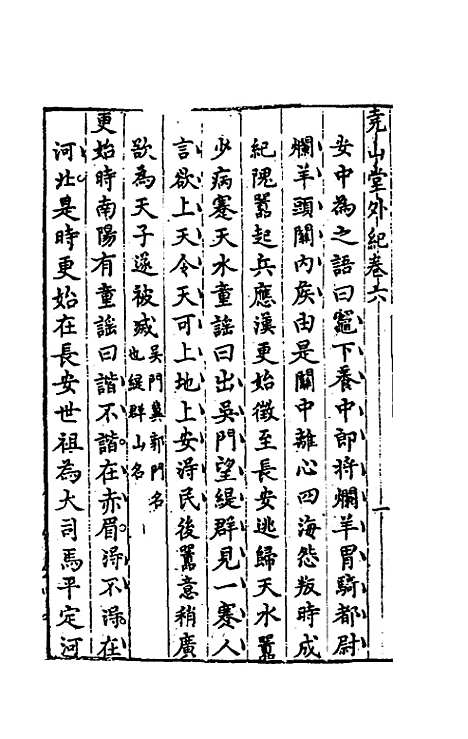 堯山堂外紀卷六 一
安中為之語曰竈下養中郎將爛羊胃騎都尉
爛羊頭關內矦由是關中離心四海怨叛時成
紀隗囂起兵應漢更始徵至長安逃歸天水囂
少病蹇天水童謠曰出吳門望緹群見一蹇人
言欲上天令天可上地上安淂民後囂意稍廣
欲為天子遂被滅吳門兾郭門名也緹群山名
更始時南陽有童謠曰諧不諧在赤眉淂不淂在
河北是時更始在長安世祖為大司馬平定河